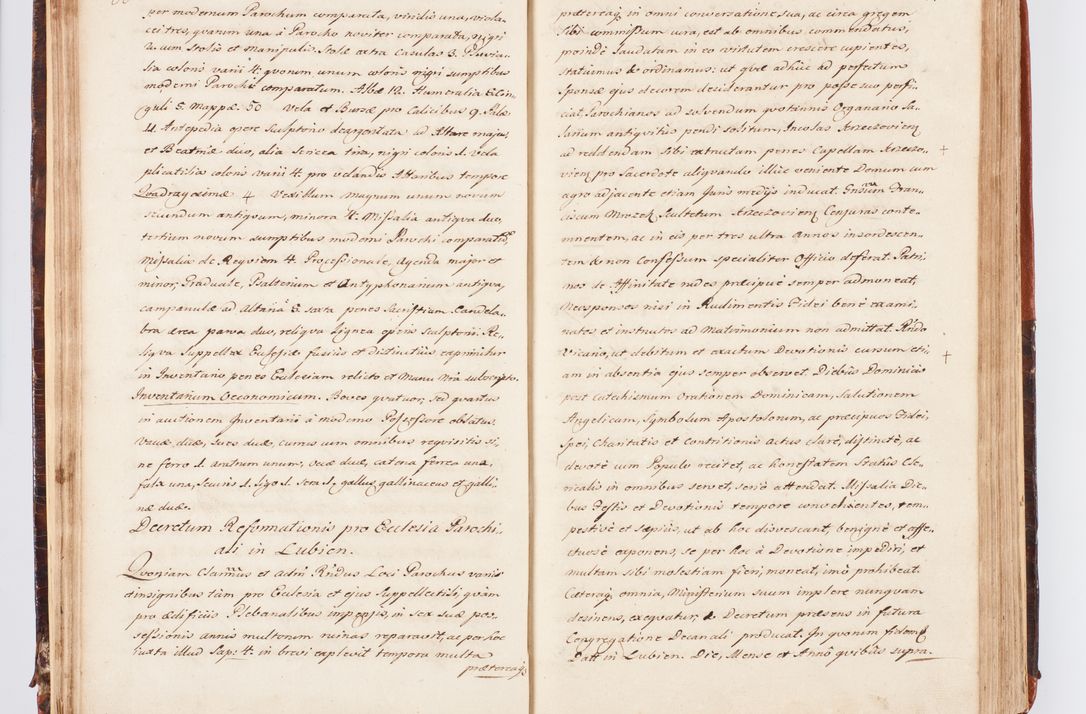 per modernum Parochum comparata, viridis una, viola„
cei tres, quarum una à Parocho noviter comparata, nigri
2. cum Stolis et manipulis. Stolæ extra Casulas 3. Pluvia„
lia coloris varii 4. quorum unum coloris nigri sumptibus
moderni Parochi comparatum. Albæ 12. Humeralia 8. Cin„
guli 5. Mappæ. 50 Vela et Bursæ pro Calicibus 9. Palæ
4. Antepedia opere Sculptorio deargentata ad Altare majus
et Beatmæ duo, alia Sericea tria, nigri coloris 1. Vela
plicatilia coloris varii 4. pro velandis Altaribus tempore
Quadragesimæ 4 Vexillum magnum unum novum
secundum antiquum, minora 4. Missalia antiqua duo,
tertium novum sumptibus moderni Parochi comparatum,
Missalia de Requiem 4. Processionale, Agenda major et
minor, Graduale, Psalterium et Antyphonarium antiqua,
campanulæ ad Altaria 5. sexta penes Sacristiam. Candela„
bra ærea parva duo, reliqua lignea operis Sculptorii. Re„
liqua Suppellex Ecclesiæ fusius et distinctius exprimitur
in Inventario penes Ecclesiam relicto et Manu Nra subscripto.
Inventarium Oeconomicum. Boves quatuor, sed quartus
in auctionem Inventarii à moderno Possessore oblatus.
Vaccæ duæ, Sues duæ, currus cum omnibus requisitis si„
ne ferro 1. aratrum unum, secæ duæ, catena ferrea una,
falx una, Securis 1. Ligo 1. Sera 1. gallus gallinaceus et galli„
næ duæ.
Decretum Reformationis pro Ecclesia Parochi„
ali in Lubien.
Quoniam Clarmus et Adm Rndus Loci Parochus variis
et insignibus tàm pro Ecclesia et ejus Suppellectili, quàm
pro ædificiis Plebanalibus impensis, in sex suæ pos„
sessionis annis multorum ruinas reparavit, ac per hoc
iuxta illud Sap: 4. in brevi explevit tempora multa
prætereaq
prætereaq in omni conversatione sua, ac circa gregem
sibi commissum cura, est ab omnibus commendatus,
proindè laudatam in eo virtutem crescere cupientes,
statuimus & ordinamus: ut quæ adhuc ad perfectum
Sponsæ ejus decorem desiderantur pro posse suo perfi„
ciat, Parochianos ad solvendum quotannis Organario Sa„
larium antiquitus pendi solitum, Incolas
ad reddendam sibi extructam penes Capellam
pro Sacerdote aliquando illuc veniente Domum cum
agro adjacente etiam Juris medijs inducat. Fran„
ciscum Mrozek Scultetum Censuras conte„
mnentem, ac in eis per tres ultra annos insordescen„
tem & non Confessum specialiter Officio deferat. Patri„
nos de Affinitate rudes præcipuè semper admoneat,
Neosponsos nisi in Rudimentis Fidei benè exami„
natos et instructos ad Matrimonium non admittat. Rndo
Vicario, ut debitum et exactum Devotionis cursum eti„
am in absentia ejus semper observet. Diebus Dominicis
post Catechismum Orationem Dominicam, Salutionem
Angelicam, Symbolum Apostolorum, ac præcipuos Fidei,
Spei, Charitatis et Contritionis actus clarè, distinctè, ac
devotè cum Populo recitet, ac honestatem Statûs Cle„
ricalis in omnibus servet, seriò attendat. Missalia Die„
bus Festis et Devotionis tempore convenientes, tem„
pestivè et sæpius, ut ab hoc divescant, benignè et affe„
ctuosè exponens, se per hoc à Devotione impediri, et
multam sibi molestiam fieri, moneat, imò prohibeat.
Cæteraq omnia, Ministerium suum implere nunquam
desinens, exequatur, & Decretum præsens in futura
Congregatione Decanali producat. In quorum fidem
Datt in Lubien. Die, Mense et Annô quibus supra.